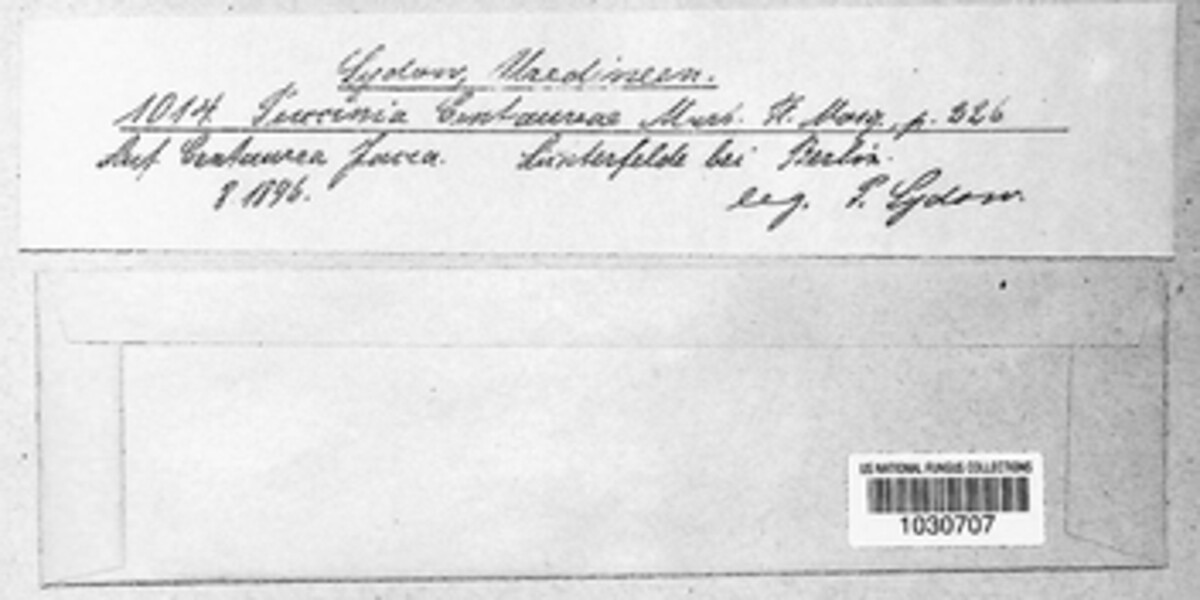 Sydow, Uredineen.
1014 Puccinia Centaureae Mart. Fl. Mosq. p. 226
Auf Centaurea Jacea. Lichterfelde bei Berlin.
8 1896.
leg. P. Sydow.
US NATIONAL FUNGUS COLLECTIONS
1030707